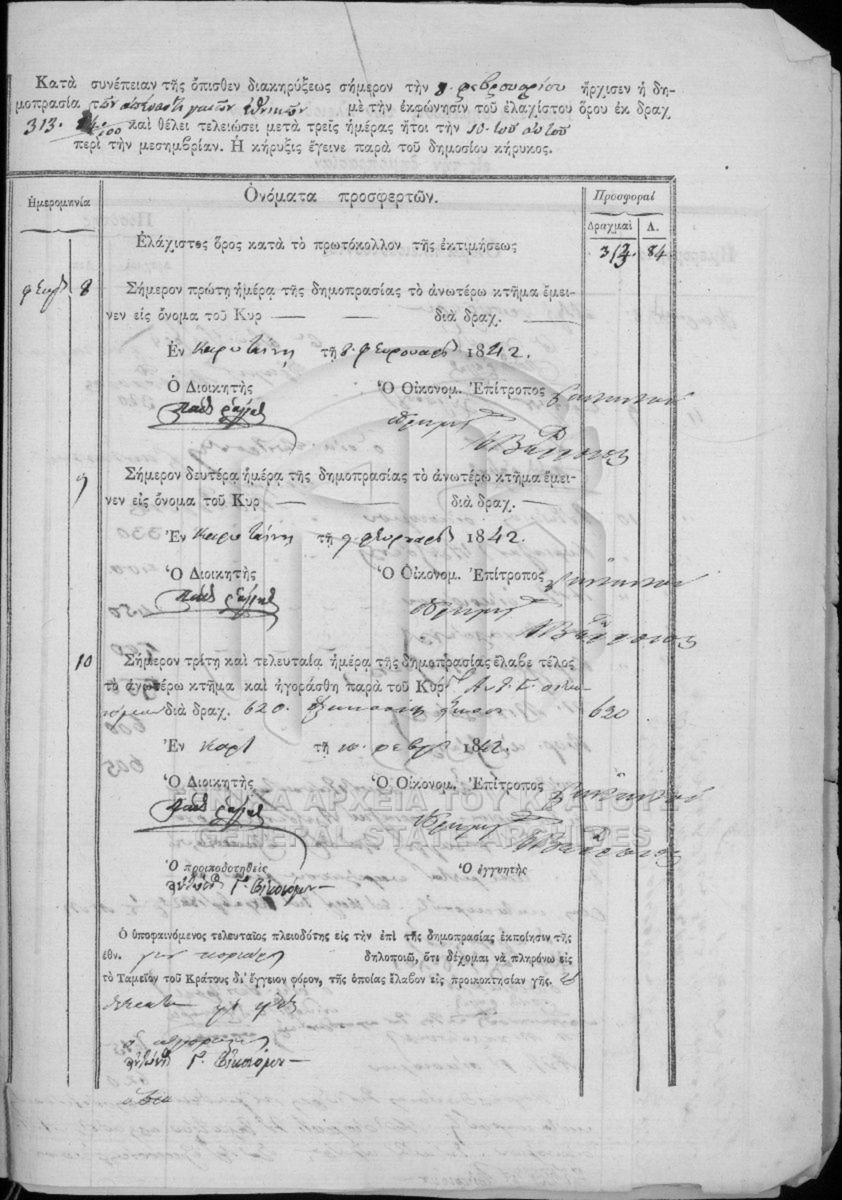 Κατὰ συνέπειαν τῆς ὄπισθεν διακηρύξεως σήμερον τὴν 8 φεβρουαρίου ἤρχισεν ἡ δη-
μοπρασία τῶν γαιῶν ἐθνικῶν μὲ τὴν ἐκφώνησιν τοῦ ἐλαχίστου ὅρου ἐκ δραχ
313. 84/100 καὶ θέλει τελειώσει μετὰ τρεῖς ἡμέρας ἤτοι τὴν 10. τοῦ αὐτοῦ
περὶ τὴν μεσημβρίαν. Ἡ κήρυξις ἔγεινε παρὰ τοῦ δημοσίου κήρυκος.
Ἡμερομηνία
Ὀνόματα προσφερτῶν.
Προσφοραὶ
Δραχμαὶ Λ.
Ἐλάχιστος ὅρος κατὰ τὸ πρωτόκολλον τῆς ἐκτιμήσεως 313. 84
8 Σήμερον πρώτῃ ἡμέρᾳ τῆς δημοπρασίας τὸ ἀνωτέρω κτῆμα ἔμει-
νεν εἰς ὄνομα τοῦ Κυρ — — διὰ δραχ. —
Ἐν Καρυταίνῃ τῇ 8. φευρουαρ 1842.
Ὁ Διοικητὴς Ὁ Οἰκονομ. Ἐπίτροπος
9 Σήμερον δευτέρᾳ ἡμέρᾳ τῆς δημοπρασίας τὸ ἀνωτέρω κτῆμα ἔμει-
νεν εἰς ὄνομα τοῦ Κυρ — — διὰ δραχ. —
Ἐν Καρυταίνῃ τῇ 9 φευρουαρ 1842.
Ὁ Διοικητὴς Ὁ Οἰκονομ. Ἐπίτροπος
10 Σήμερον τρίτῃ καὶ τελευταίᾳ ἡμέρᾳ τῆς δημοπρασίας ἔλαβε τέλος
τὸ ἀνωτέρω κτῆμα καὶ ἠγοράσθη παρὰ τοῦ Κυρ Ἀνθ. Γ. οἰκο-
νόμου διὰ δραχ. 620. ἑξακοσίας εἴκοσι 620
Ἐν Καρτ τῇ 10. φεβρ 1842.
Ὁ Διοικητὴς Ὁ Οἰκονομ. Ἐπίτροπος
ΓΕΝΙΚΑ ΑΡΧΕΙΑ ΤΟΥ ΚΡΑΤΟΥΣ
GENERAL STATE ARCHIVES
Ὁ προικοδοτηθεὶς Ὁ ἐγγυητὴς
Γ. Οἰκονόμου
Ὁ ὑποφαινόμενος τελευταῖος πλειοδότης εἰς τὴν ἐπὶ τῆς δημοπρασίας ἐκποίησιν τῆς
ἐθν. δηλοποιῶ, ὅτι δέχομαι νὰ πληρόνω εἰς
τὸ Ταμεῖον τοῦ Κράτους δι' ἔγγειον φόρον, τῆς ὁποίας ἔλαβον εἰς προικοκτησίαν γῆς.
Γ. Οἰκονόμου